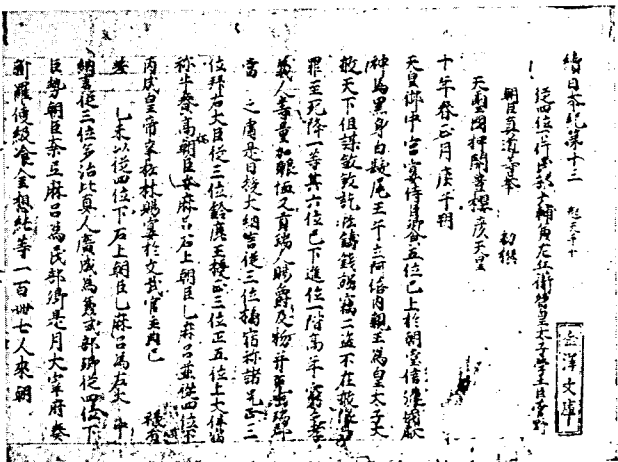 續日本紀巻第十三 起天平十
從四位下行民部大輔兼左兵衛督皇太子學士臣菅野
朝臣真道等奉 勅撰
天璽國押開豊櫻彦天皇
十年春正月庚午朔
天皇御中宮宴侍臣饗五位已上於朝堂信濃國獻
神馬黒身白髦尾壬午立阿倍内親王為皇太子大
赦天下但謀殺殺訖私鑄錢強竊二盗不在赦限
罪至死降一等其六位已下進位一階高年窮乏孝
義人等量加賑恤又有瑞人賜爵及物并免出瑞郡
當 之庸是日授大納言從三位橘宿祢諸兄正三
位拜右大臣從三位鈴鹿王授正三位正五位上大伴宿
祢牛養高朝臣安麻呂石上朝臣乙麻呂並從四位下
丙戌皇帝幸松林賜宴於文武官主典已 有
差 乙未以從四位下石上朝臣乙麻呂為左大弁
納言從三位多治比真人廣成為兼式部卿從四位下
巨勢朝臣奈弖麻呂為民部卿是月大宰府奏
新羅使級飡金想純等一百卌七人來朝
金澤文庫